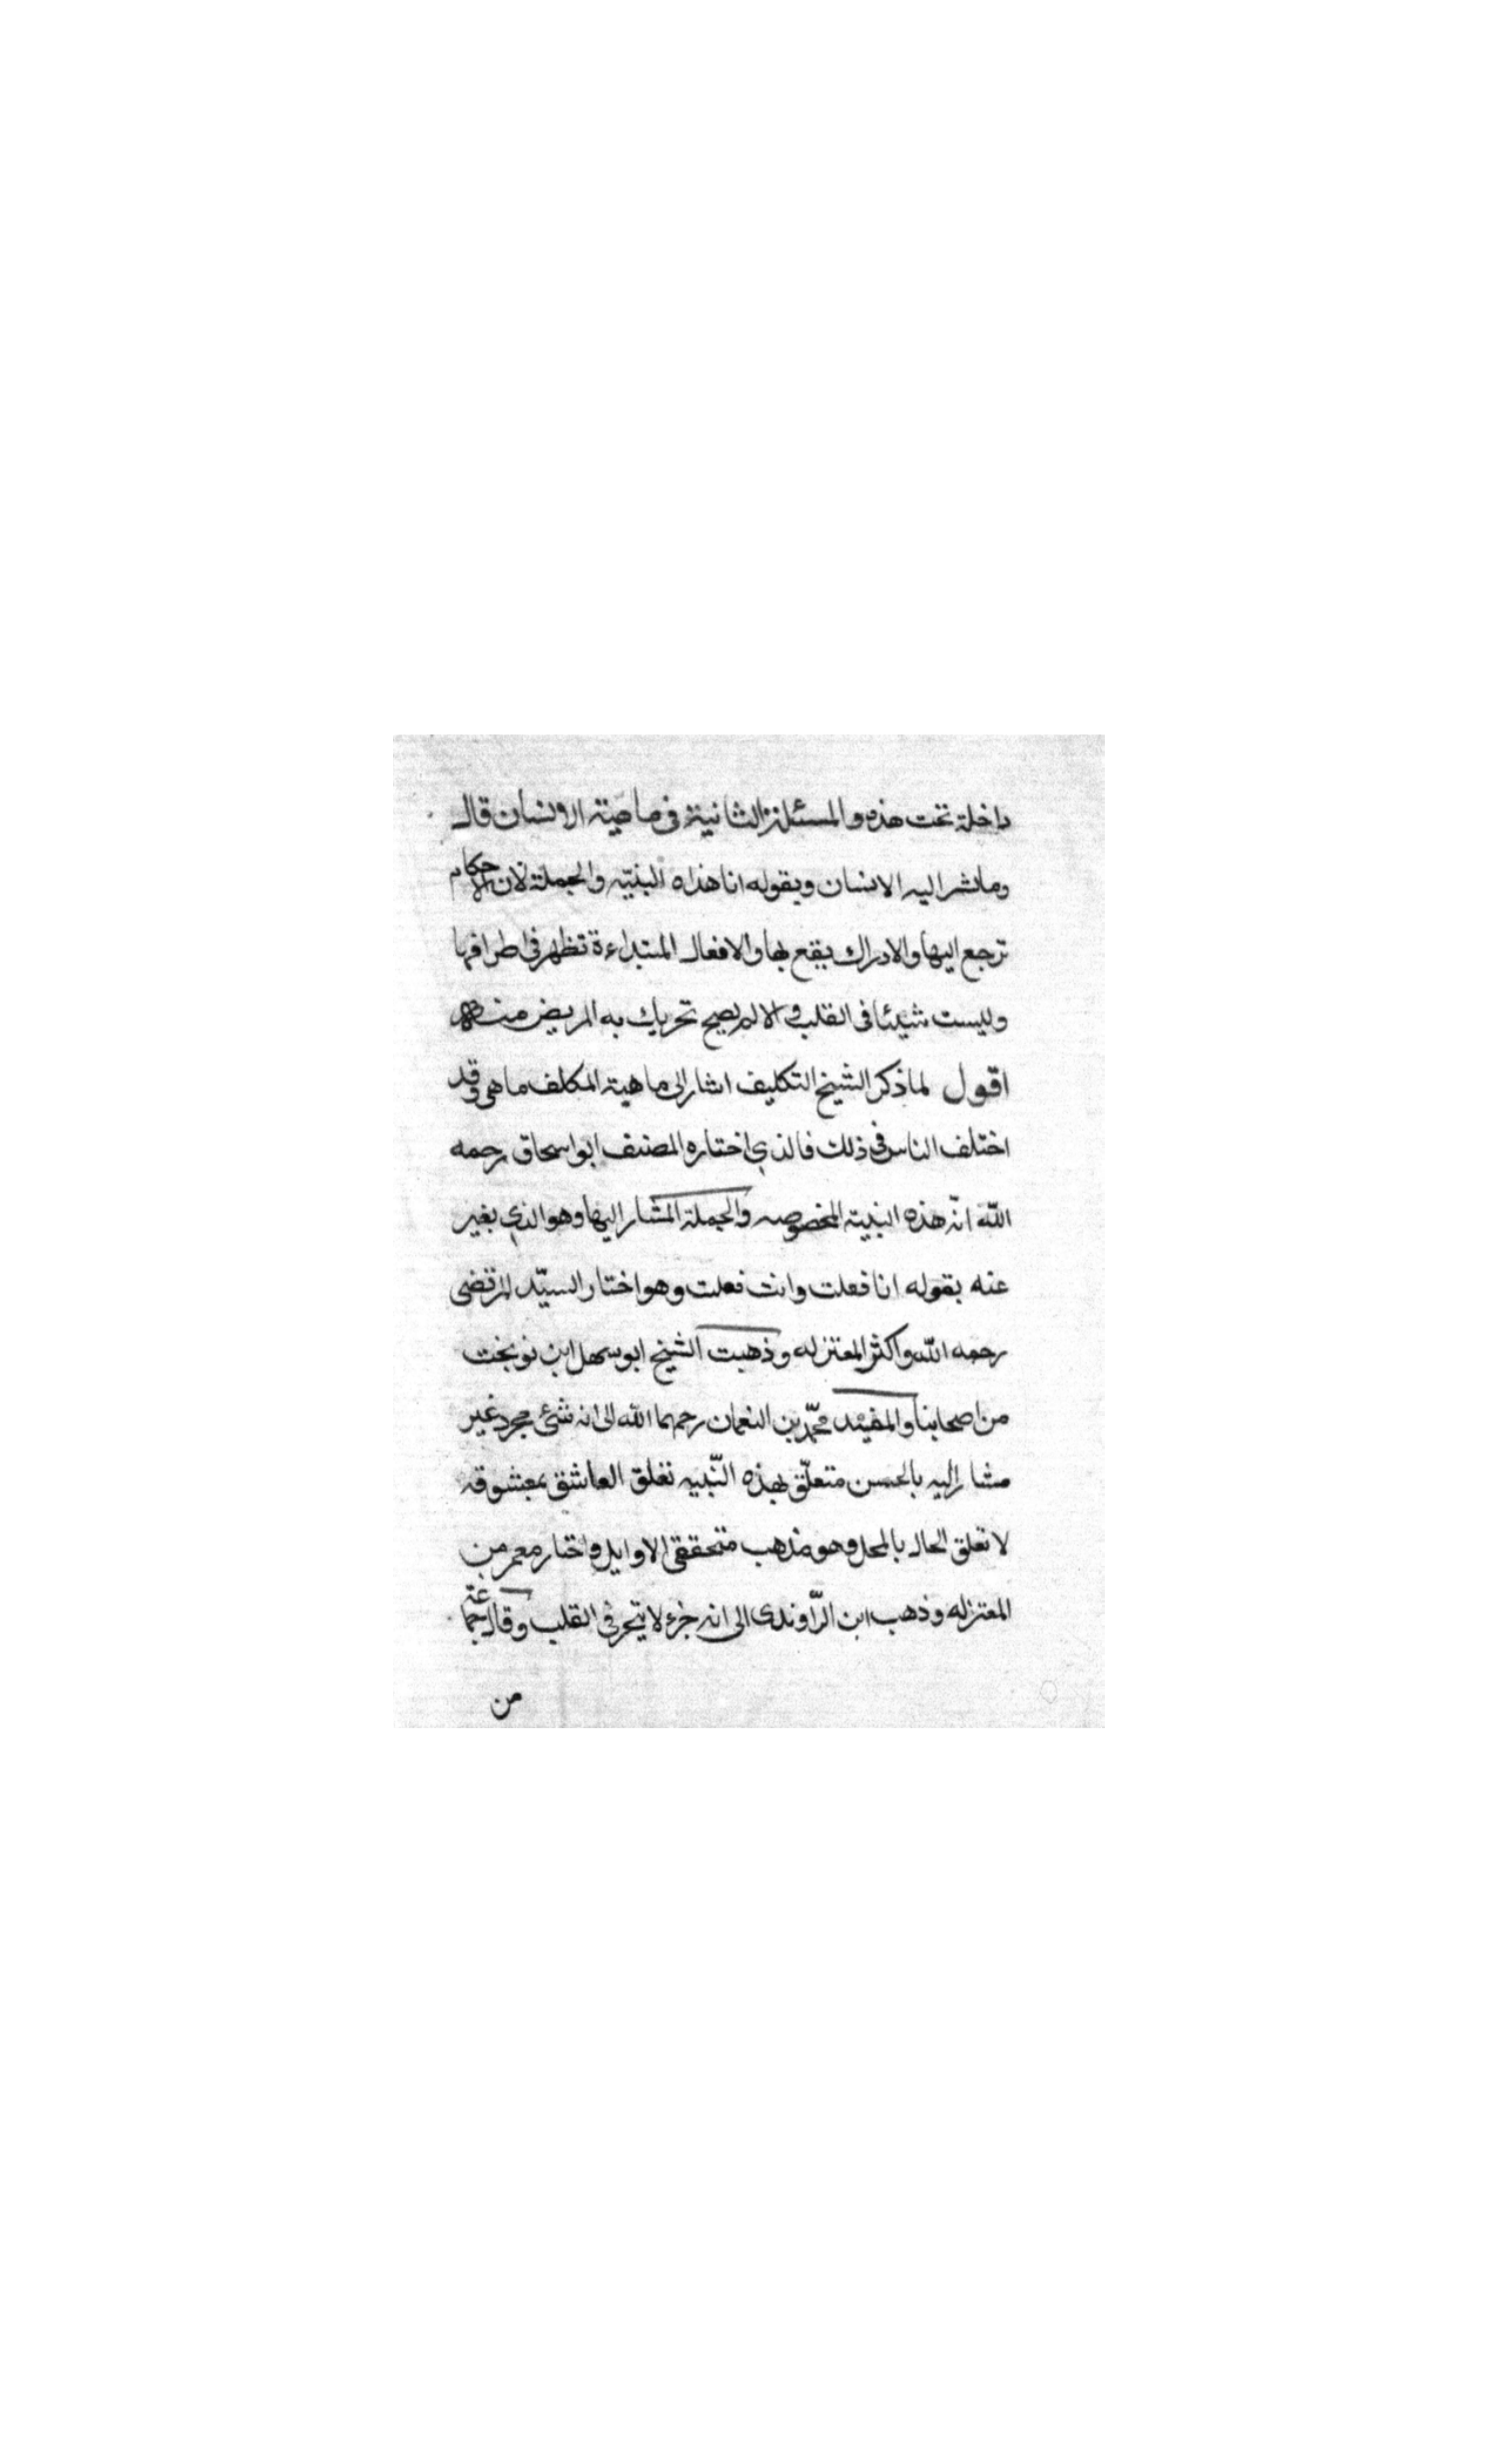 داخلة تحت هذه والمسئلة الثانية فى ماهية الانسان قال
وما نشر اليه الانسان ويقوله انا هذاه البنيّه والجملة لان الاحكام
ترجع اليها والادراك يقع بها والافعال المبتداءة تظهر فى اطرافها
وليست شيئا فى القلب والا لم يصح تحريك به المريض منه
اقول لما ذكر الشيخ التكليف اشار الى ماهية المكلف ما هى وقد
اختلف الناس فى ذلك فالذي اختاره المصنف ابو اسحاق رحمه
اللّه انّه هذه البنية المخصوصه والجملة المشار اليها وهو الذي بغير
عنه بقوله انا فعلت وانت فعلت وهو اختار السيّد المرتضى
رحمه اللّه واكثر المعتزله وذهبت الشيخ ابو سهل ابن نوبخت
من اصحابنا والمفيد محمّد بن النعمان رحمهما اللّه الى انه شئ مجرد غير
مشار اليه بالحسن متعلّق بهذه النّبيه تغلق العاشق بمعشوقه
لا تعلق الحال بالمحل وهو مذهب متحققى الاوايل واختار معمر من
المعتزله وذهب ابن الرّاوندى الى انه جزء لا يتجر فى القلب وقال جماعة
من